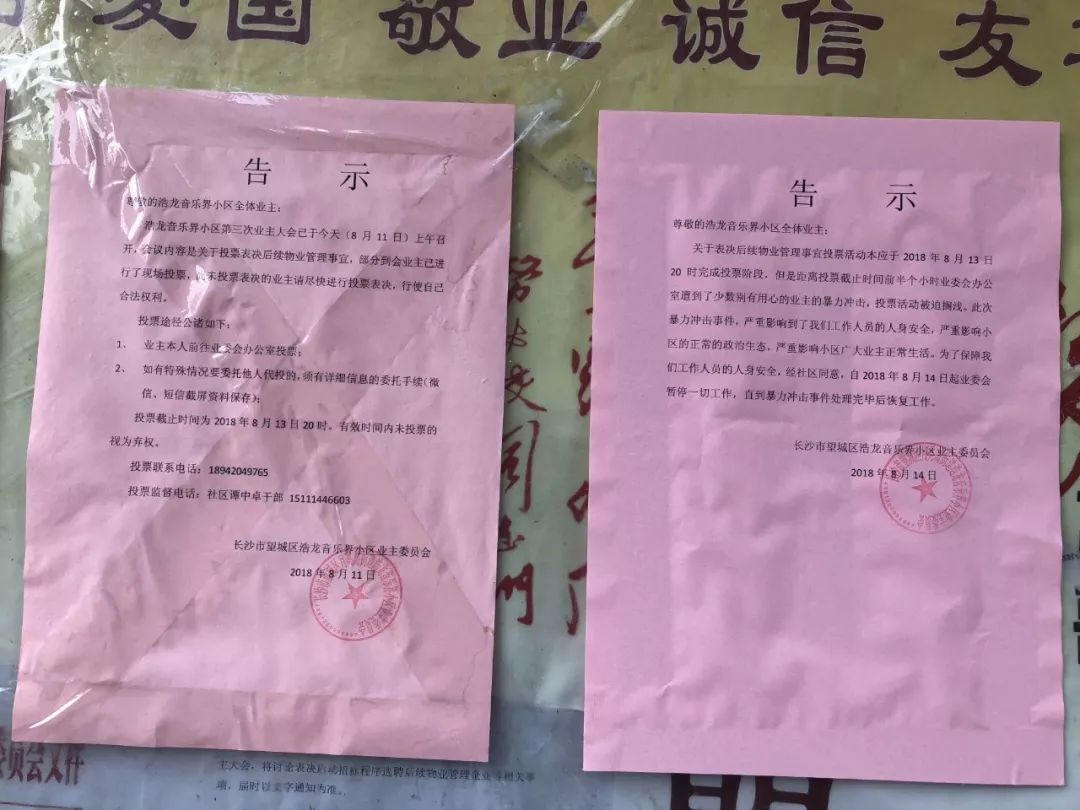 爱国 敬业 诚信 友
告 示
尊敬的浩龙音乐界小区全体业主：
浩龙音乐界小区第三次业主大会已于今天（8 月 11 日）上午召
开，会议内容是关于投票表决后续物业管理事宜，部分到会业主已进
行了现场投票，尚未投票表决的业主请尽快进行投票表决，行使自己
合法权利。
投票途径公诸如下：
1、 业主本人前往业委会办公室投票；
2、 如有特殊情况要委托他人代投的，须有详细信息的委托手续（微
信、短信截屏资料保存）；
投票截止时间为 2018 年 8 月 13 日 20 时。有效时间内未投票的
视为弃权。
投票联系电话：18942049765
投票监督电话：社区谭中卓干部 15111446603
长沙市望城区浩龙音乐界小区业主委员会
2018 年 8 月 11 日
告 示
尊敬的浩龙音乐界小区全体业主：
关于表决后续物业管理事宜投票活动本应于 2018 年 8 月 13 日
20 时完成投票阶段，但是距离投票截止时间前半个小时业委会办公
室遭到了少数别有用心的业主的暴力冲击，投票活动被迫搁浅。此次
暴力冲击事件，严重影响到了我们工作人员的人身安全，严重影响小
区的正常的政治生态，严重影响小区广大业主正常生活。为了保障我
们工作人员的人身安全，经社区同意，自 2018 年 8 月 14 日起业委会
暂停一切工作，直到暴力冲击事件处理完毕后恢复工作。
长沙市望城区浩龙音乐界小区业主委员会
2018 年 8 月 14 日
委员会文件
主大会，将讨论表决启动招标程序选聘后续物业管理企业等相关事
项，届时以文字通知为准。